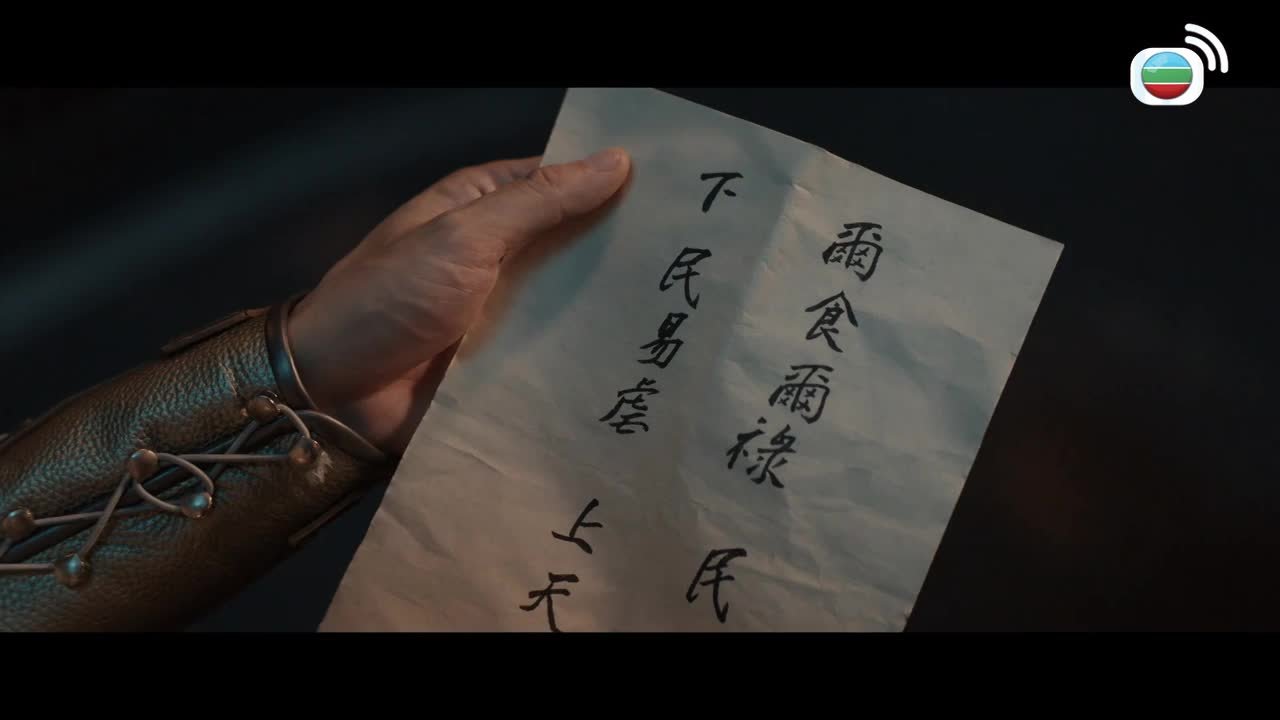 爾食爾祿民
下民易虐上天